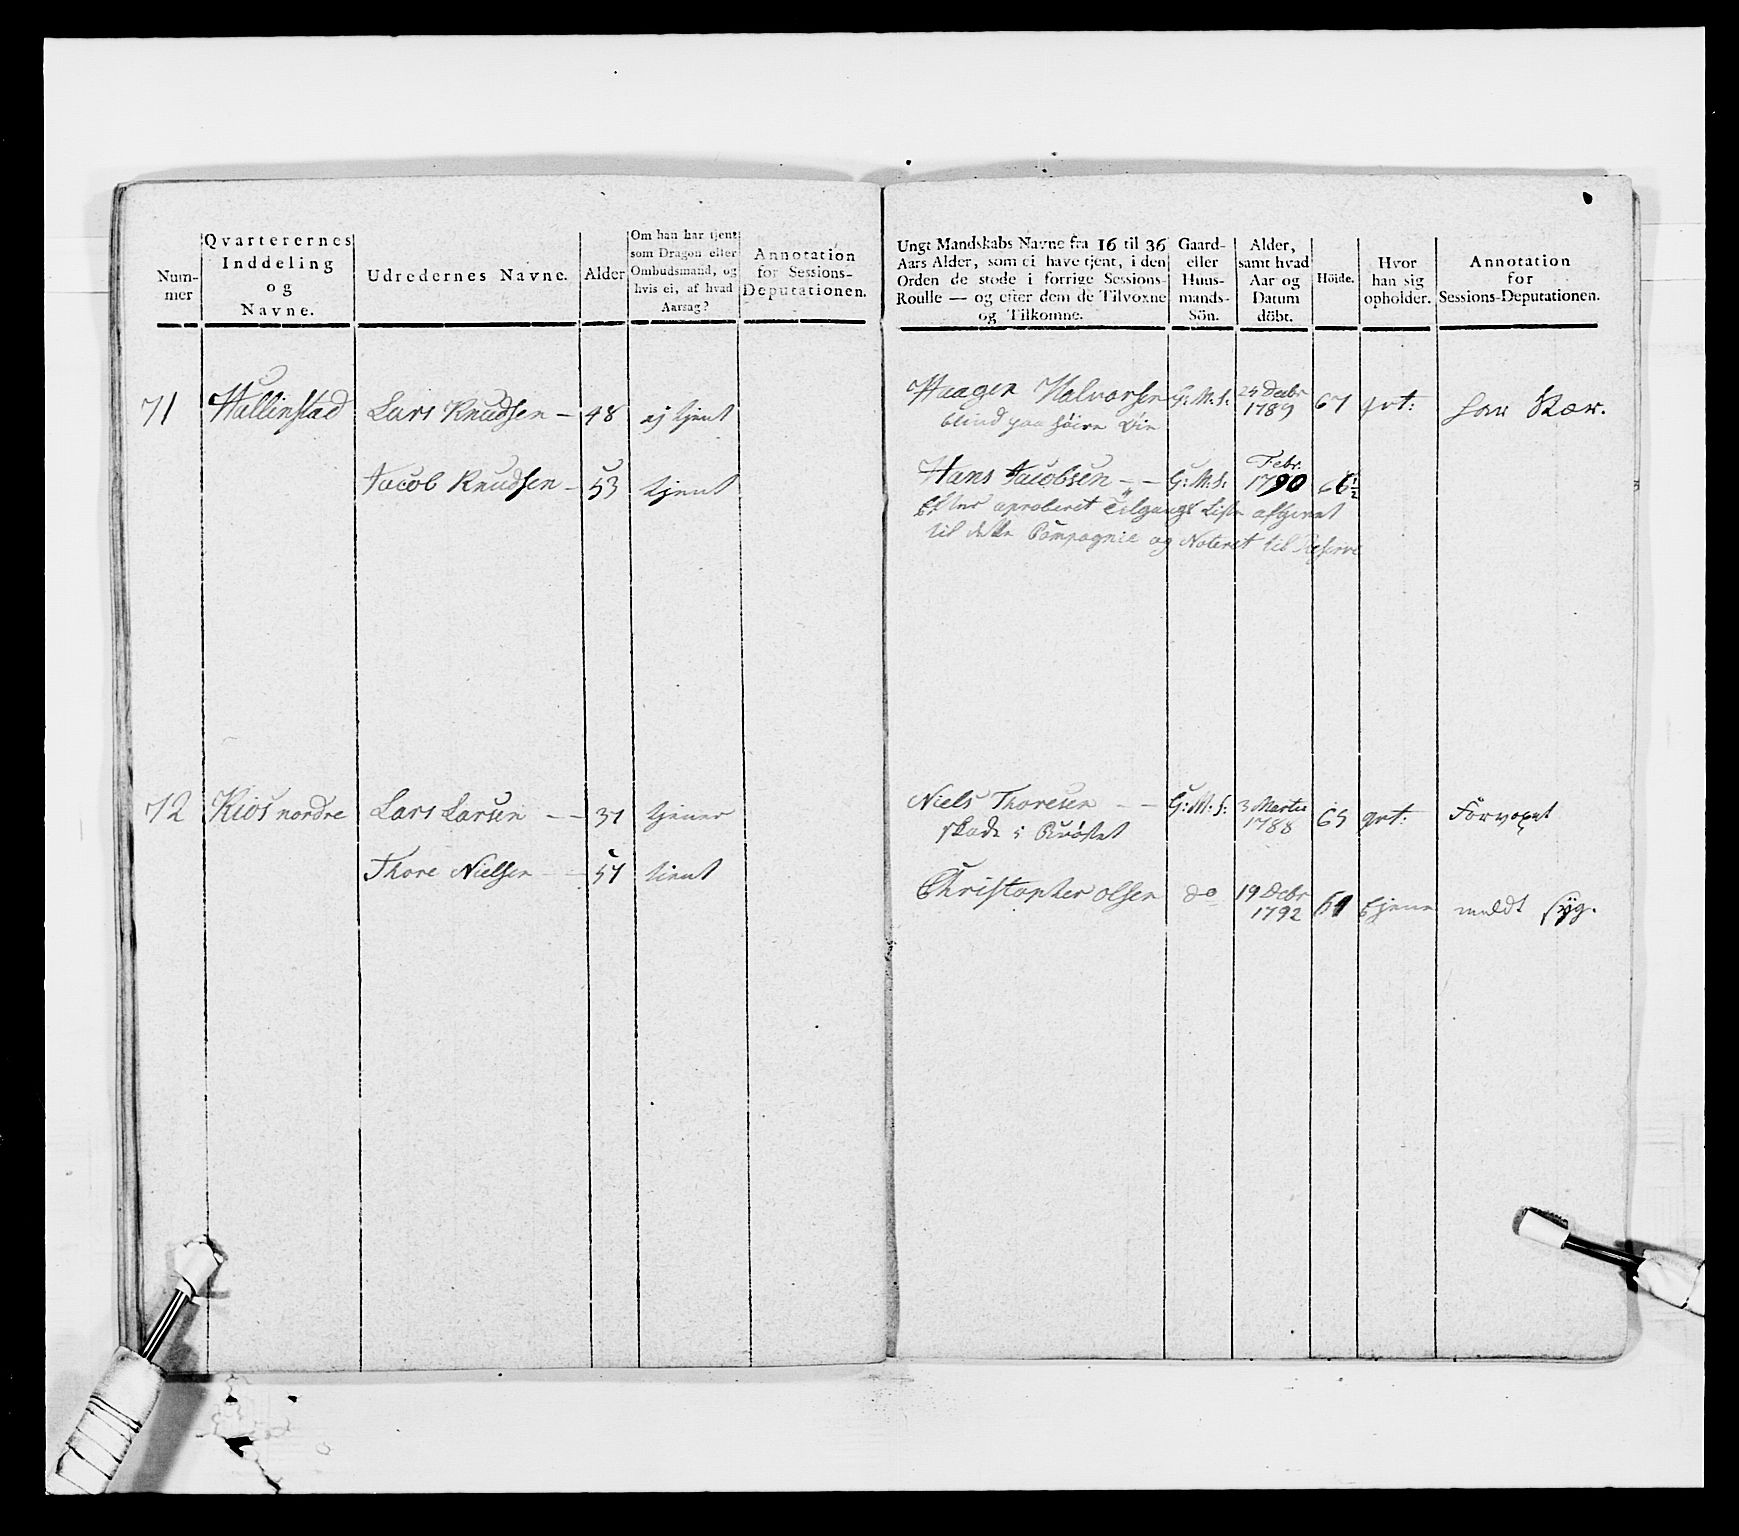 Num-
mer
Qvarterernes
Inddeling
og
Navne.
Udredernes Navne.
Alder
Om han har tjent
som Dragon eller
Ombudsmand, og
hvis ei, af hvad
Aarsag?
Annotation
for Sessions-
Deputationen.
71 Hallinstad Lars Knudsen — 48 ej tjent
Jacob Knudsen - 53 tjent
72 Kios nordre Lars Larsen - - 37 tjener
Thore Nielsen - - 57 tient
Ungt Mandskabs Navne fra 16 til 36
Aars Alder, som ei have tjent, i den
Orden de stode i forrige Sessions-
Roulle — og efter dem de Tilvoxne
og Tilkomne.
Gaard-
eller
Huus-
mands-
Sön.
Alder,
samt hvad
Aar og
Datum
döbt.
Höide.
Hvor
han sig
opholder.
Annotation
for
Sessions-Deputationen.
Haagen Halvorsen G: M: S: 24 Decbr 1789 67
blind paa høire Øie
Hans Jacobsen - - G: M: S: Febr. 1790 66 1/2
Efter aproberet Tilgangs Liste afgivet
til dette Compagnie og Noteret til Reserve
Niels Thoresen - - G: M: S: 3 Martii 1788 65 Forvoxet
skade i Brøstet
Christopher Olsen do 19 Decbr 1792 meldt syg.